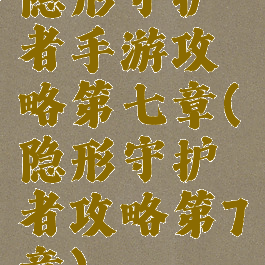 隐形守护
者手游攻
略第七章(
隐形守护
者攻略第7
章)